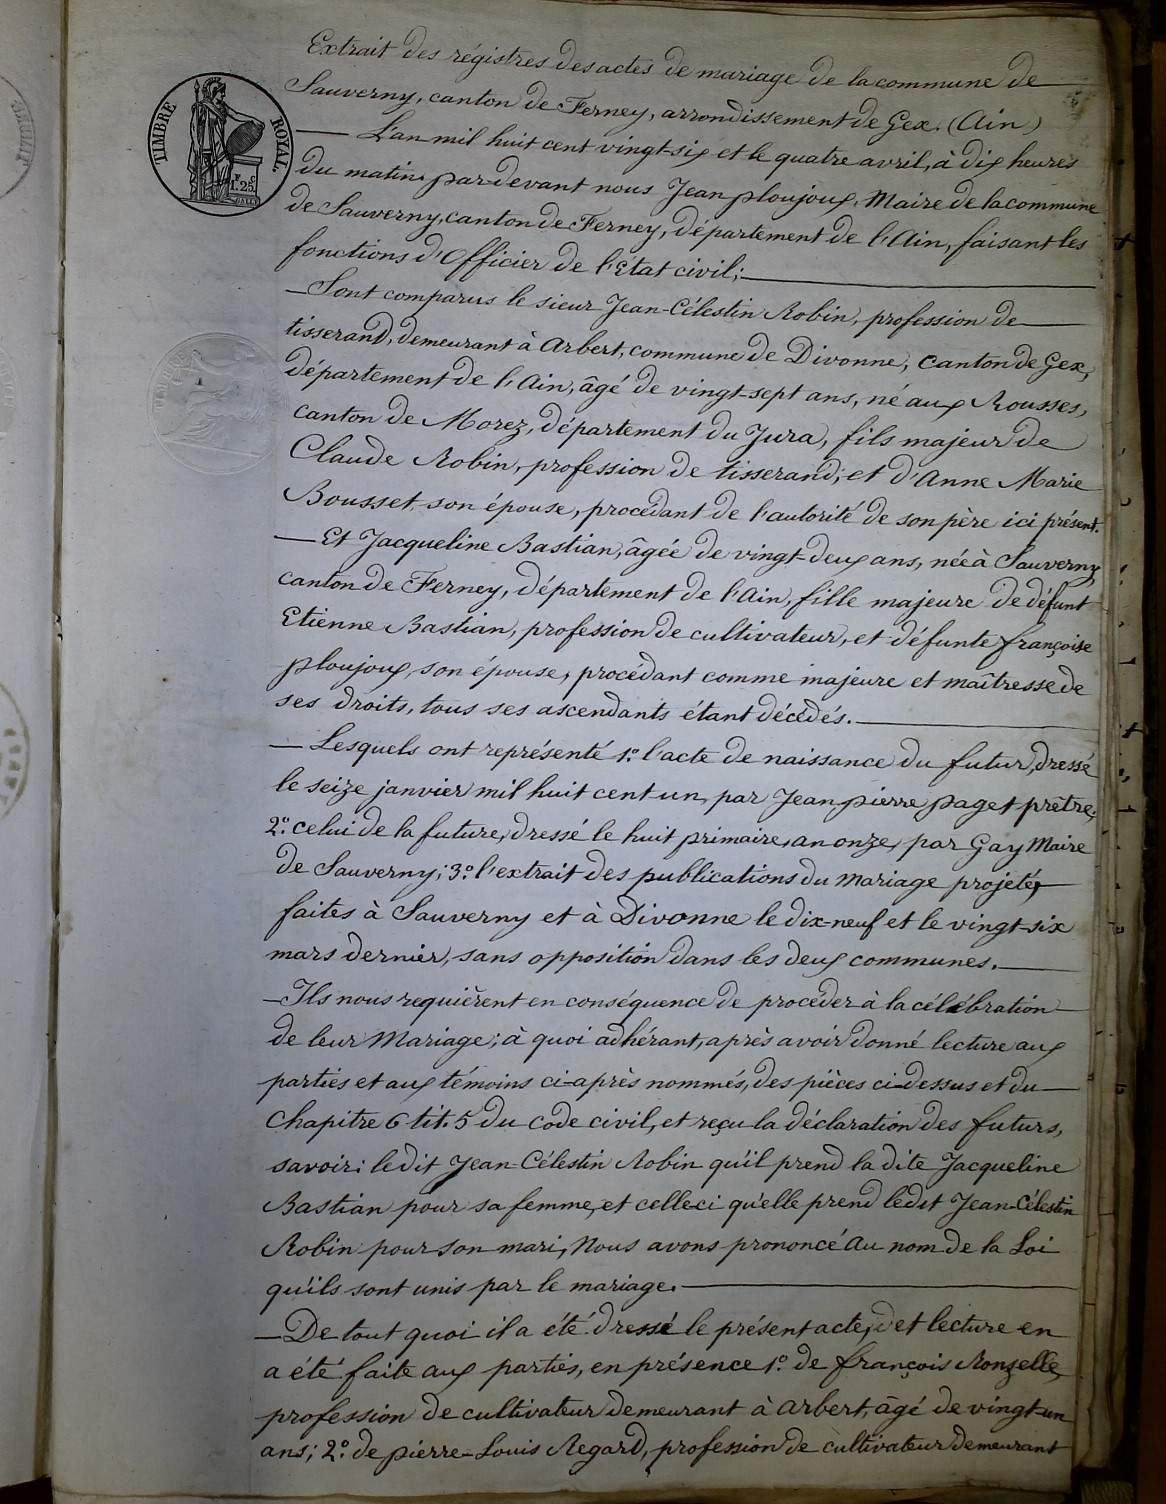 Extrait des régistres des actes de mariage de la commune de
Sauverny, canton de Ferney, arrondissement de Gex. (Ain)
L'an mil huit cent vingt-six et le quatre avril, à dix heures
du matin, par-devant nous Jean ploujoux, Maire de la commune
de Sauverny, canton de Ferney, département de l'Ain, faisant les
fonctions d'Officier de l'Etat civil;
TIMBRE ROYAL
1F.25
Sont comparus le sieur Jean-Célestin Robin, profession de
tisserand, demeurant à Arbert, commune de Divonne, canton de Gex,
département de l'Ain, âgé de vingt-sept ans, né aux Rousses,
canton de Morez, département du Jura, fils majeur de
Claude Robin, profession de tisserand; et d'Anne Marie
Bousset son épouse, procédant de l'autorité de son père ici présent.
Et Jacqueline Bastian, âgée de vingt-deux ans, née à Sauverny,
canton de Ferney, département de l'Ain, fille majeure de défunt
Etienne Bastian, profession de cultivateur, et défunte françoise
ploujoux, son épouse, procédant comme majeure et maîtresse de
ses droits, tous ses ascendants étant décédés.
Lesquels ont représenté 1.° l'acte de naissance du futur, dressé
le seize janvier mil huit cent un, par Jean pierre paget prêtre;
2.° celui de la future, dressé le huit primaire, an onze, par Gay Maire
de Sauverny; 3.° l'extrait des publications du mariage projeté,
faites à Sauverny et à Divonne le dix-neuf et le vingt-six
mars dernier, sans opposition dans les deux communes.
Ils nous requièrent en conséquence de procéder à la célébration
de leur Mariage; à quoi adhérant, après avoir donné lecture aux
parties et aux témoins ci-après nommés, des pièces ci-dessus et du
chapitre 6 tit. 5 du code civil, et reçu la déclaration des futurs,
savoir: ledit Jean-Célestin Robin qu'il prend la dite Jacqueline
Bastian pour sa femme, et celle-ci qu'elle prend ledit Jean-Célestin
Robin pour son mari, Nous avons prononcé Au nom de la Loi
qu'ils sont unis par le mariage.
De tout quoi il a été dressé le présent acte, et lecture en
a été faite aux parties, en présence 1.° de françois Monzelle,
profession de cultivateur demeurant à Arbert, âgé de vingt-un
ans; 2.° de pierre-Louis Regard, profession de cultivateur demeurant